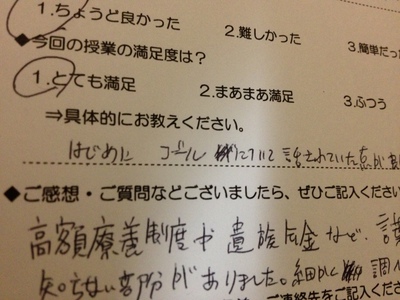 1.ちょうど良かった 2.難しかった 3.簡単だっ
◆今回の授業の満足度は?
1.とても満足 2.まあまあ満足 3.ふつう
⇒具体的にお教えください。
はじめに ゴール について 話されていた点が
◆ご感想・ご質問などございましたら、ぜひご記入ください
高額療養制度や遺族年金など、言葉
知らない部分がありました。細かく 調べ
ご連絡先をご記